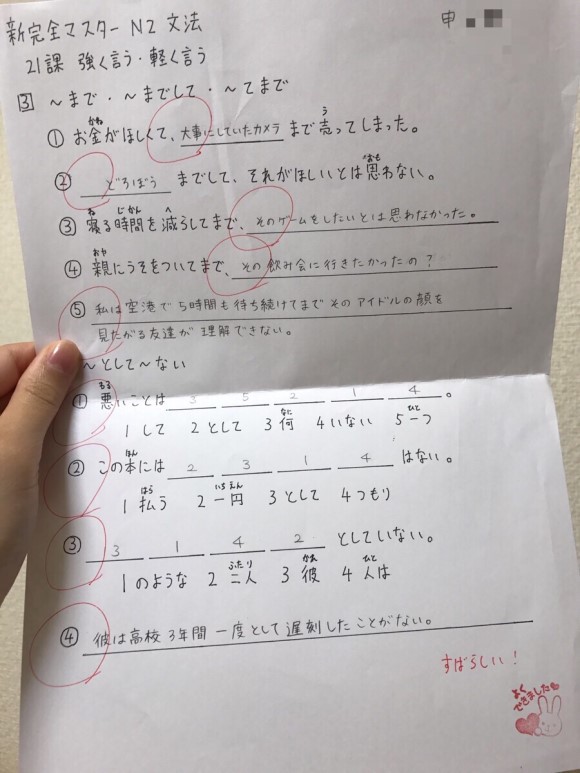 新完全マスター N2 文法
申
21課 強く言う・軽く言う
3 ～まで・～までして・～てまで
① お金がほしくて、大事にしていたカメラまで売ってしまった。
② どろぼうまでして、それがほしいとは思わない。
③ 寝る時間を減らしてまで、そのゲームをしたいとは思わなかった。
④ 親にうそをついてまで、その飲み会に行きたかったの？
⑤ 私は空港で5時間も待ち続けてまでそのアイドルの顔を
見たがる友達が理解できない。
～として～ない
① 悪いことは 3 5 2 1 4 。
1 して 2 として 3 何 4 いない 5 一つ
② この本には 2 3 1 4 はない。
1 払う 2 一円 3 として 4 つもり
③ 3 1 4 2 としていない。
1 のような 2 二人 3 彼 4 人は
④ 彼は高校3年間一度として遅刻したことがない。
すばらしい！
よく
できました